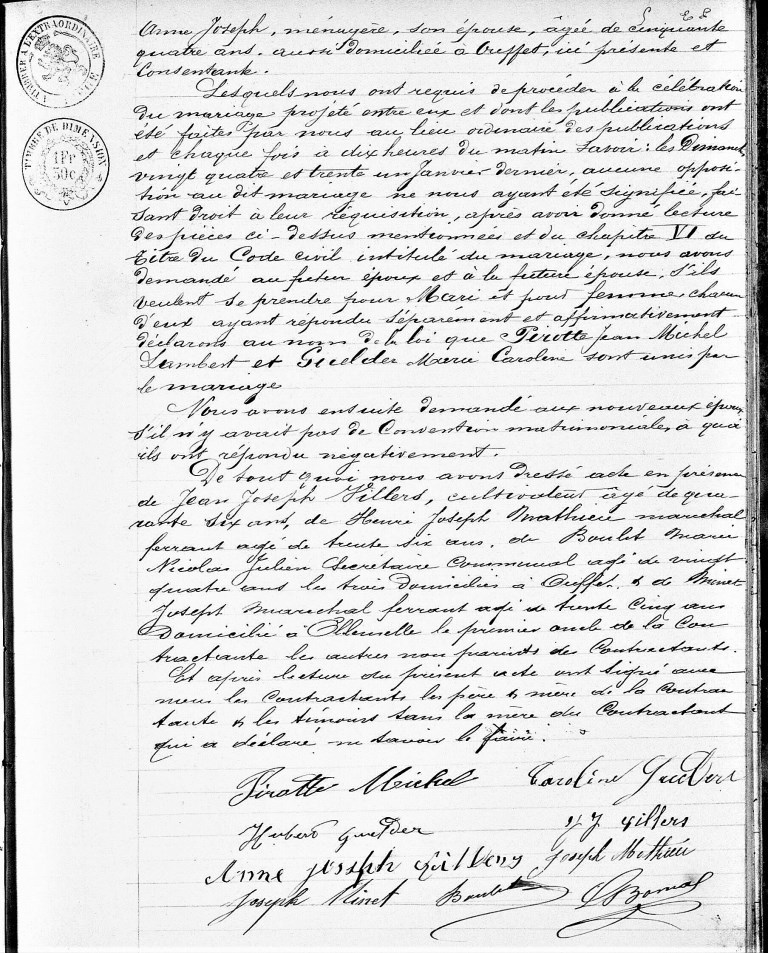 Anne Joseph, ménagère, son épouse, âgée de Cinquante
quatre ans. aussi domiciliée à Ouffet, ici présente et
Consentante.
Lesquels nous ont requis de procéder à la célébration
du mariage projeté entre eux et dont les publications ont
été faites par nous au lieu ordinaire des publications
et chaque fois à dix heures du matin savoir: les Dimanches
vingt quatre et trente un Janvier dernier, aucune opposi-
tion au dit mariage ne nous ayant été signifiée, fai
sant droit à leur réquisition, après avoir donné lecture
des pièces ci-dessus mentionnées et du chapitre VI du
titre du Code civil intitulé du mariage, nous avons
demandé au futur époux et à la future épouse, s'ils
veulent se prendre pour Mari et pour femme, chacun
d'eux ayant répondu séparément et affirmativement
déclarons au nom de la loi que Pirotte Jean Michel
Lambert et Guelder Marie Caroline sont unis par
le mariage
Nous avons ensuite demandé aux nouveaux époux
s'il n'y avait pas de Convention matrimoniales, à quoi
ils ont répondu négativement.
De tout quoi nous avons dressé acte en présence
de Jean Joseph Villers, cultivateur agé de qua-
rante six ans, de Henri Joseph Mathieu maréchal
ferrant agé de trente six ans, de Boulet Marie
Nicolas Julien Secrétaire Communal agé de vingt
quatre ans les trois domiciliés à Ouffet. & de Minet
Joseph Marechal ferrant agé de trente Cinq ans
domicilié à Ellemelle le premier oncle de la Con
tractante les autres non parents des Contractants.
Et après lecture du présent acte ont signé avec
nous les Contractants les père & mère de la Contrac
tante & les témoins sans la mère du Contractant
qui a déclaré ne savoir le faire.
Pirotte Michel Caroline Guelder
Hubert Guelder J J Villers
Anne joseph Joseph Mathieu
Joseph Minet Boulet
A TIMBRER A L'EXTRAORDINAIRE
TIMBRE DE DIMENSION
1 Fr
50c